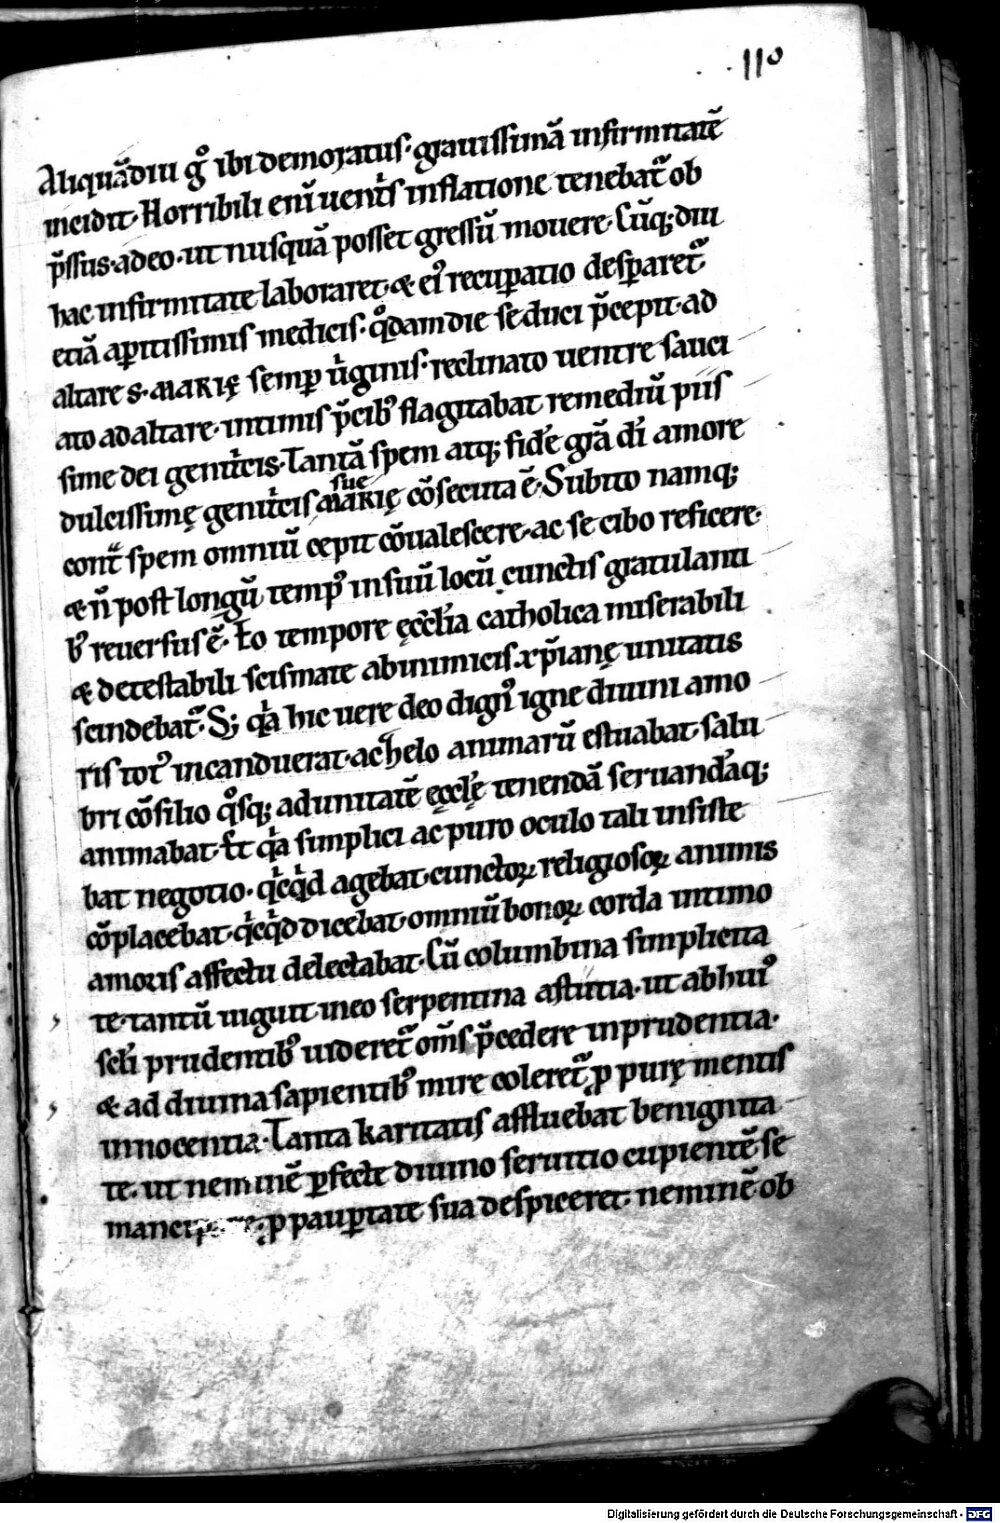 110
Aliquādiu gͦ ibi demoratus· grauissimā infirmitatē
incidit· Horribili eni̅ uent͛s inflatione tenebat᷑ ob
p̄ssus· adeo· ut nusquā posset gressū mouere· Cūq; diu
hac infirmitate laboraret· & ei᷒ recuꝑatio desꝑaret᷑
etiā aꝑitissimis medicis· qͦdam die se duci p̄cepit· ad
altare s· MARIĘ semꝑ uͥginis· reclinato uentre sauci
ato ad altare· intimis p̄cib᷒ flagitabat remediū piis
sime dei genitͥcis· Tantā spem atq; fidē grā di̅ amore
dulcissimę genitͥcis sue MARIĘ cōsecuta ē· Subito namq;
cont᷑ spem omniū cepit cōualescere· ac se cibo reficere·
& n̄ post longū temp᷒ in suū locū cunctis gratulanti
b᷒ reuersus ē· Eo tempore ęccl̅ia catholica miserabili
& detestabili scismate ab inimicis xp̄ianę unitatis
scindebat᷑· S; qͥa hic uere deo dign᷒ igne diuini amo
ris tot᷒ incanduerat· ac zelo animarū estuabat· salu
bri cōsilio qͦsq; ad unitatē ęccl̅ę tenendā seruandāq;
animabat· Et qͥa simplici ac puro oculo tali insiste
bat negotio· qͥcqͥd agebat· cunctoꝝ religiosoꝝ animis
cōplacebat· qͥcqͥd dicebat· omniū bonoꝝ corda intimo
amoris affectu delectabat· Cū columbina simplicita
te· tantū uiguit in eo serpentina astutia· ut ab hui᷒
scl̅i prudentib᷒ uideret᷑ om̅s p̄cedere in prudentia·
& ad diuina sapientib᷒ mire coleret᷑ ꝓ purę mentis
innocentia· Tanta karitatis affluebat benignita
te· ut neminē ꝑfecte diuino seruitio cupientē se
ꝓ pauꝑtate sua despiceret· neminē ob
Digitalisierung gefördert durch die Deutsche Forschungsgemeinschaft - DFG